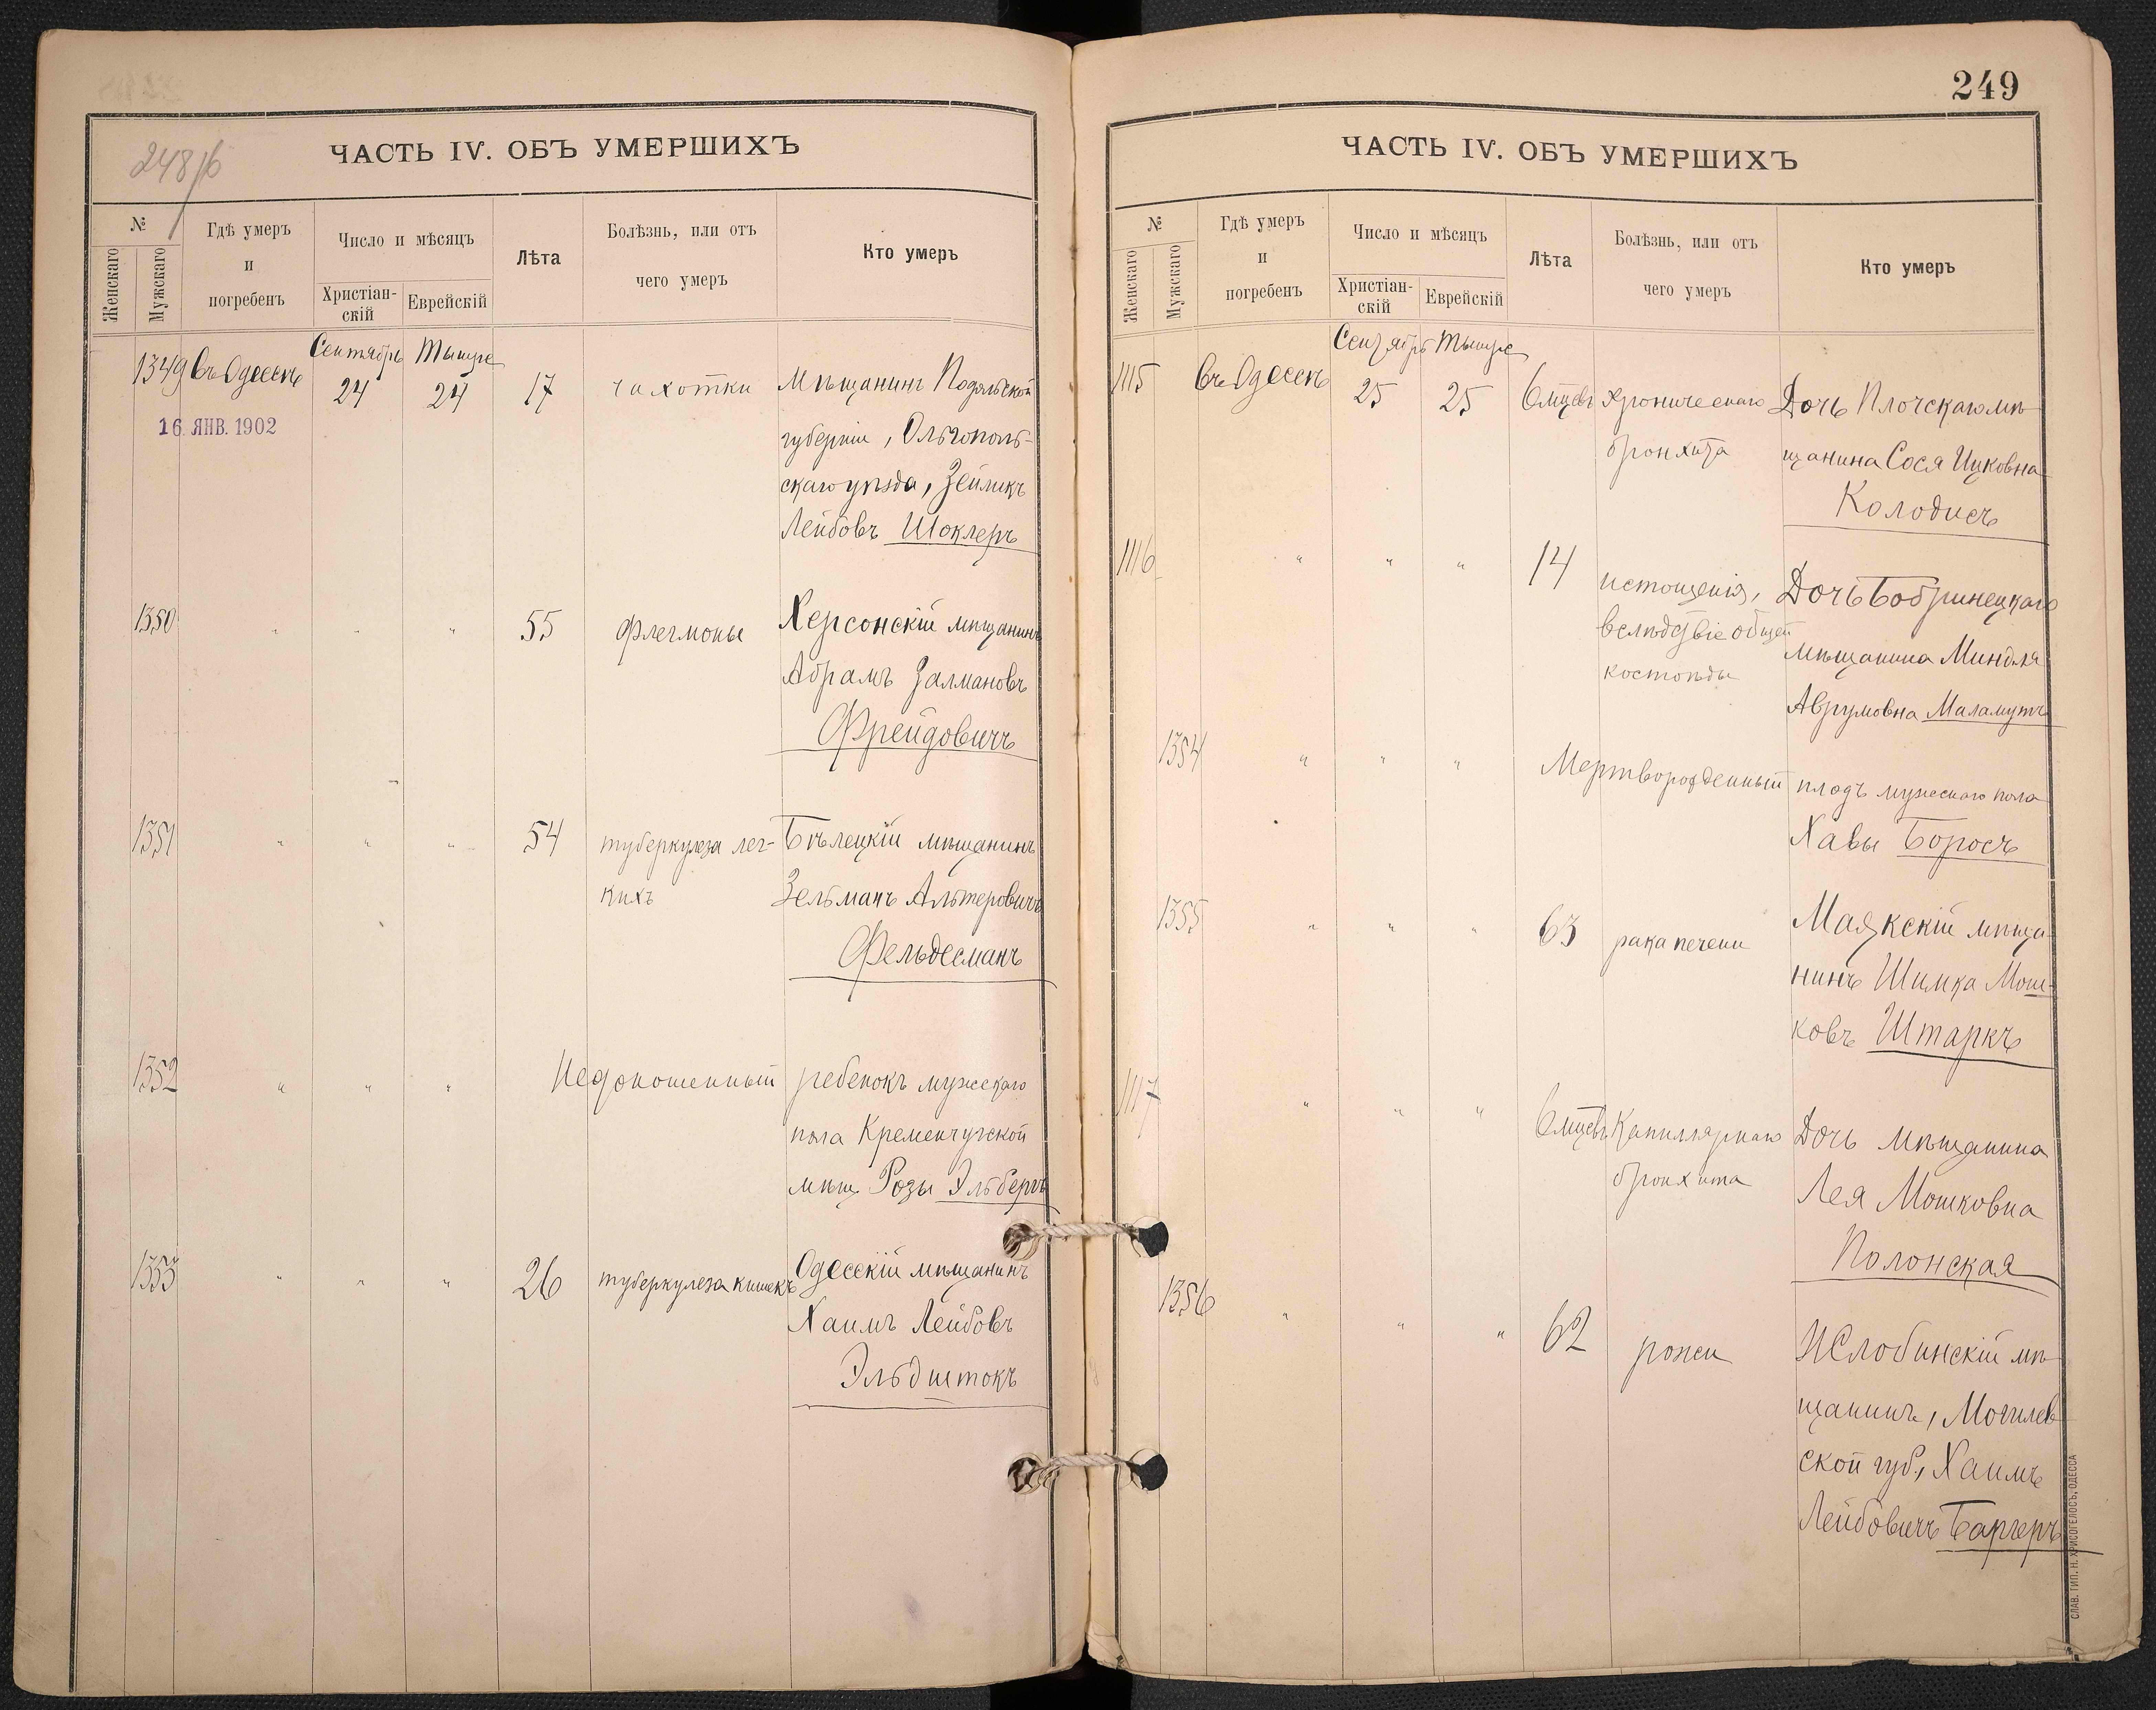 248 об
ЧАСТЬ IV. ОБЪ УМЕРШИХЪ
№
Женскаго
Мужскаго
Гдѣ умеръ
и
погребенъ
Число и мѣсяцъ
Христіан-
скій
Еврейскій
Лѣта
Болѣзнь, или отъ
чего умеръ
Кто умеръ
Сентябрь Тышре
1349 Въ Одессѣ 24 24 17 чахотки Мѣщанинъ Подольской
16 ЯНВ. 1902
губерніи, Ольгополь-
скаго уѣзда, Зейликъ
Лейбовъ Шоклеръ
1350 " " " 55 флегмоны Херсонскій мѣщанинъ
Абрамъ Залмановъ
Фрейдовичъ
1351 " " " 54 туберкулеза лег- Бѣлецкій мѣщанинъ
кихъ Зельманъ Альтеровичъ
Фельдесманъ
1352 " " " Недоношенный ребенокъ мужескаго
пола Кременчугской
мѣщ Розы Эльбертъ
1353 " " " 26 туберкулеза кишекъ Одесскій мѣщанинъ
Хаимъ Лейбовъ
Эльдштокъ
249
ЧАСТЬ IV. ОБЪ УМЕРШИХЪ
№
Женскаго
Мужскаго
Гдѣ умеръ
и
погребенъ
Число и мѣсяцъ
Христіан-
скій
Еврейскій
Лѣта
Болѣзнь, или отъ
чего умеръ
Кто умеръ
Сентябрь Тышре
1115 Въ Одессѣ 25 25 6 мцевъ хроническаго Дочь Плочскаго мѣ-
бронхита щанина Сося Ицковна
Колодисъ
1116 " " " 14 истощенія, Дочь Бобринецкаго
вслѣдствіе общей мѣщанина Миндля
костоѣды Аврумовна Маламутъ
1354 " " " Мертворожденный плодъ мужескаго пола
Хавы Боросъ
1355 " " " 63 рака печени Маякскій мѣща-
нинъ Шимка Мош-
ковъ Штаркъ
1117 " " " 6 мцевъ Капиллярнаго Дочь мѣщанина
бронхита Лея Мошковна
Полонская
1356 " " " 62 рожи Жлобинскій мѣ-
щанинъ, Могилев-
ской губ., Хаимъ
Лейбовичъ Баргеръ
СЛАВ. ТИП. Н. ХРИСОГЕЛОСЪ, ОДЕССА